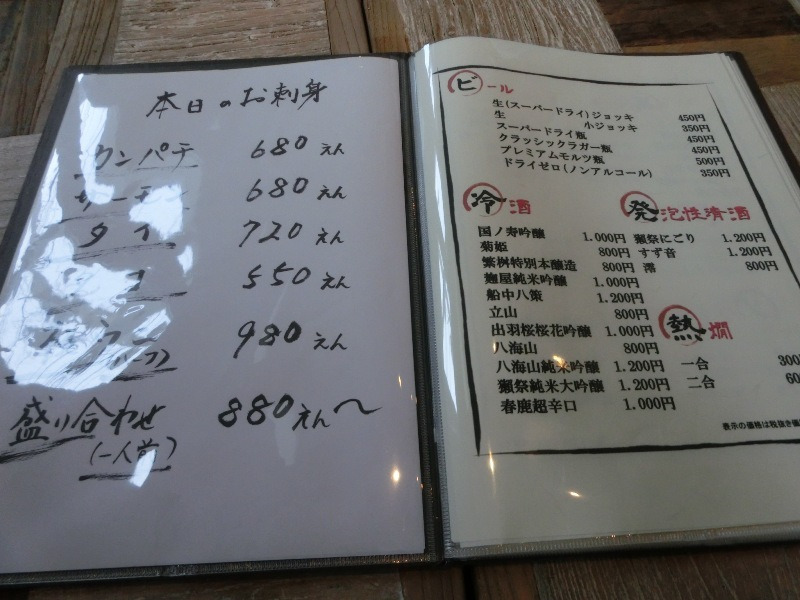 本日のお刺身
カンパチ 680えん
サーモン 680えん
タイ 720えん
550えん
980えん
盛り合わせ 880えん〜
(一人前)
ビール
生(スーパードライ)ジョッキ 450円
生 小ジョッキ 350円
スーパードライ瓶 450円
クラッシックラガー瓶 450円
プレミアムモルツ瓶 500円
ドライゼロ(ノンアルコール) 350円
冷酒
国ノ寿吟醸 1.000円
菊姫 800円
繁桝特別本醸造 800円
麹屋純米吟醸 1.000円
船中八策 1.200円
立山 800円
出羽桜桜花吟醸 1.000円
八海山 800円
八海山純米吟醸 1.200円
獺祭純米大吟醸 1.200円
春鹿超辛口 1.000円
発泡性清酒
獺祭にごり 1.200円
すず音 1.200円
澪 800円
熱燗
一合 300
二合 60
表示の価格は税抜き価